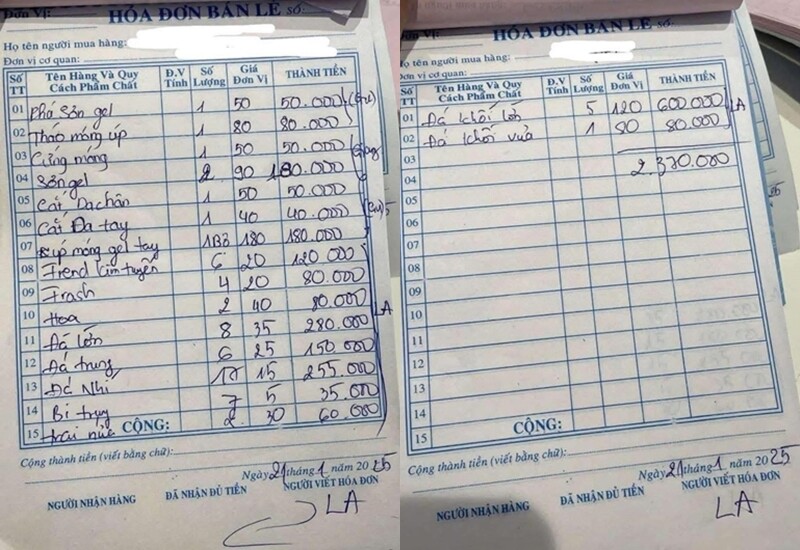 Đơn Vị:
HÓA ĐƠN BÁN LẺ Số:
Họ tên người mua hàng:
Đơn vị cơ quan:
Số TT Tên Hàng Và Quy Cách Phẩm Chất Đ.V Tính Số Lượng Giá Đơn Vị THÀNH TIỀN
01 Phá Sơn gel 1 50 50.000
02 Tháo móng úp 1 80 80.000
03 Cứng móng 1 50 50.000
04 Sơn gel 2 90 180.000
05 Cắt Da chân 1 50 50.000
06 Cắt Da tay 1 40 40.000
07 Úp móng gel tay 1Bộ 180 180.000
08 Trend kim tuyến 6 20 120.000
09 Trash 4 20 80.000
10 Hoa 2 40 80.000
11 Đá lớn 8 35 280.000
12 Đá trung 6 25 150.000
13 Đá Nhí 17 15 255.000
14 Bi trụ 7 5 35.000
15 2 30 60.000
LA
CỘNG:
Cộng thành tiền (viết bằng chữ):
Ngày 21 tháng 1 năm 2025
NGƯỜI NHẬN HÀNG ĐÃ NHẬN ĐỦ TIỀN NGƯỜI VIẾT HÓA ĐƠN
LA
HÓA ĐƠN BÁN LẺ Số:
Họ tên người mua hàng:
Đơn vị cơ quan:
Số TT Tên Hàng Và Quy Cách Phẩm Chất Đ.V Tính Số Lượng Giá Đơn Vị THÀNH TIỀN
01 Đá khối lớn 5 120 600.000 LA
02 Đá khối vừa 1 80 80.000
03 2.370.000
04
05
06
07
08
09
10
11
12
13
14
15 CỘNG:
Cộng thành tiền (viết bằng chữ):
Ngày 21 tháng 1 năm 2025
NGƯỜI NHẬN HÀNG ĐÃ NHẬN ĐỦ TIỀN NGƯỜI VIẾT HÓA ĐƠN
LA